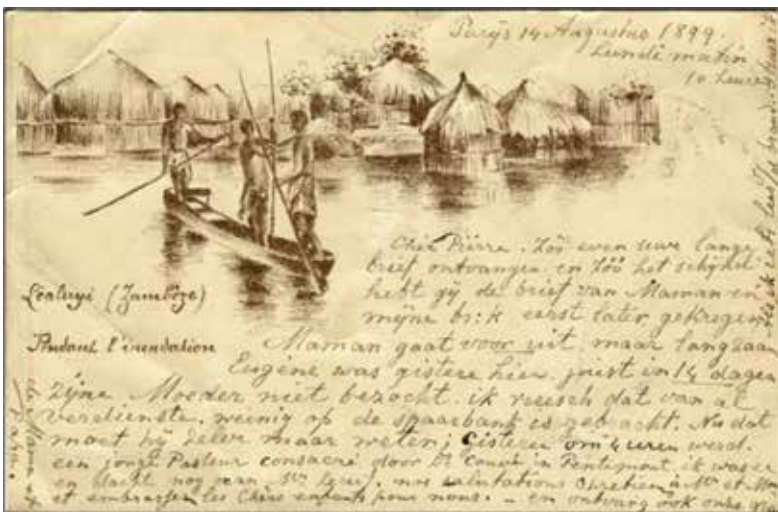 Parijs 14 Augustus 1899.
Lundi matin
10 heure
Cher Pierre. Zoo even uwe lange
brief ontvangen en Zoo het schijnt
hebt gij de brief van Maman en
mijne br:k eerst later gekregen
Lealuyi (Zambèze)
Pendant l'inondation
Maman gaat voor uit maar langzaam
Eugène was gistere hier. juist in 14 dagen
Zijne Moeder niet bezocht. ik vreesch dat van al
verdienste, weinig op de spaarbank is gebracht. Nu dat
moet hij zelve maar weten; Gisteren om 4 uren werd
een jonge Pasteur consacré door Dr in Pentimont, ik was er
en dacht nog aan Mr nos salutations Chretien à Mr et Mm
et embrasser les Chère enfants pour nous. - en ontvang ook onze